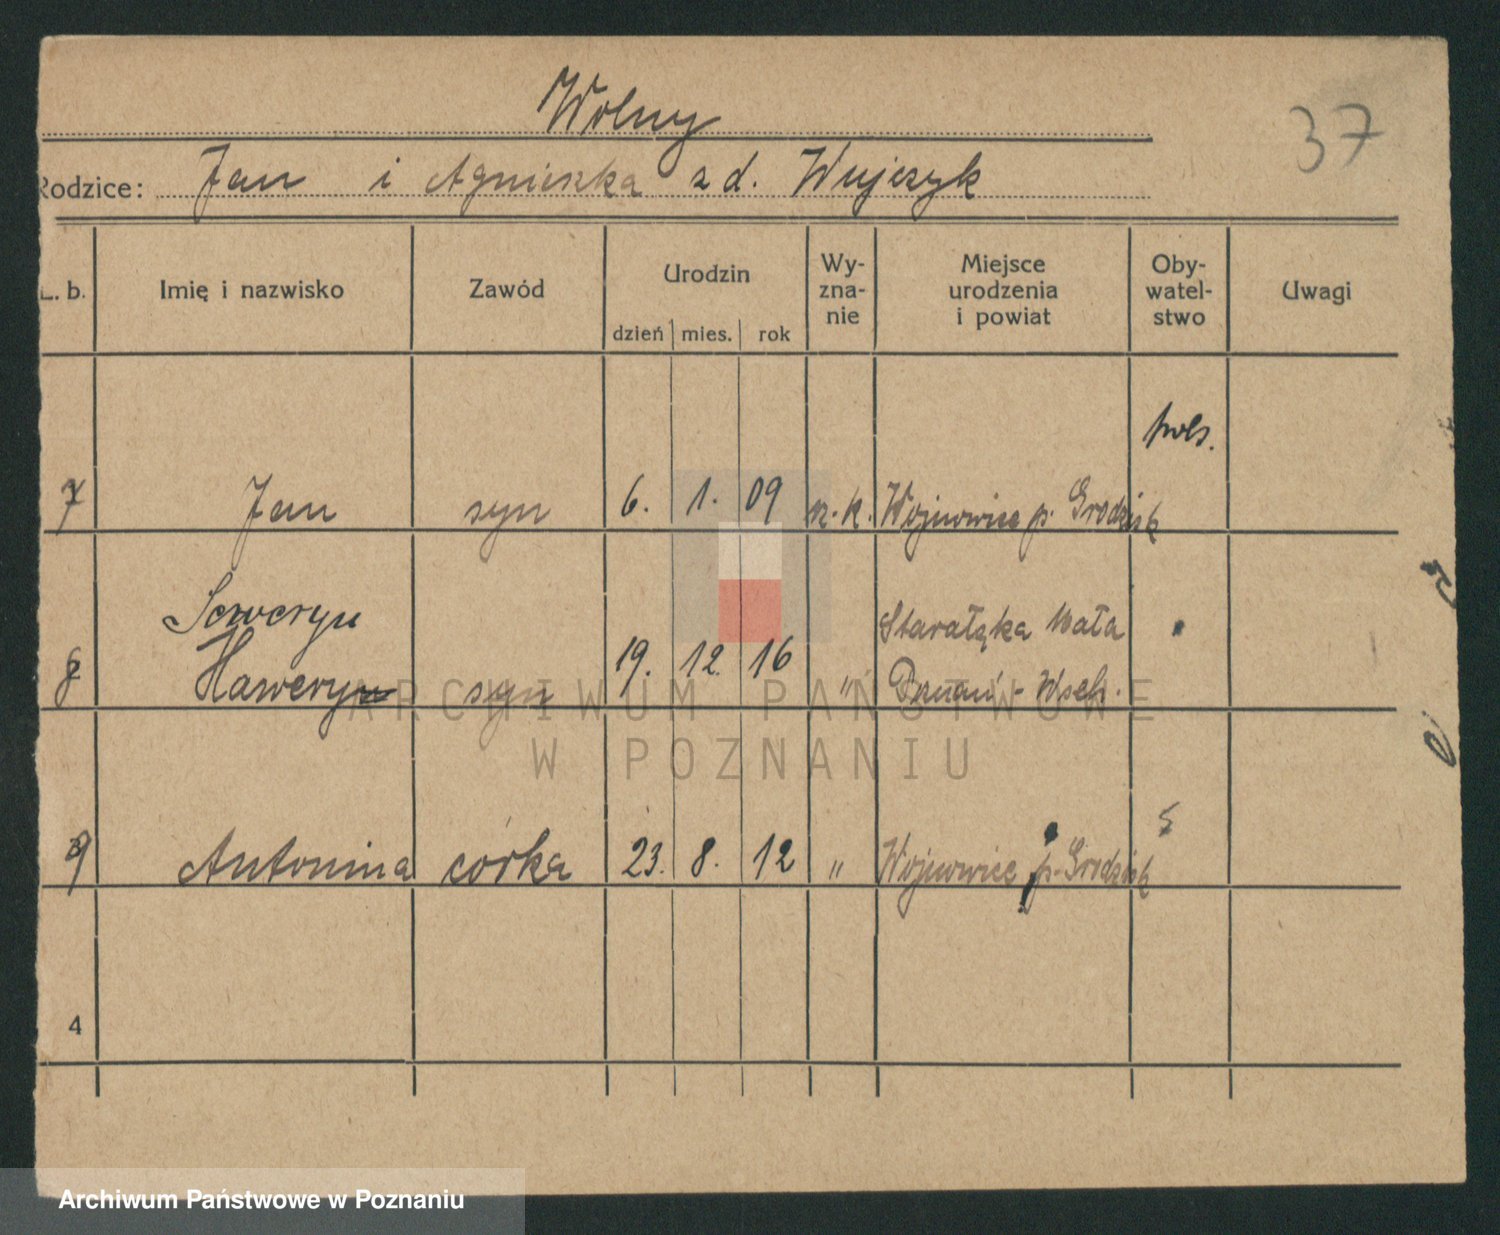 Wolny
37
Rodzice: Jan i Agnieszka z d. Wujczyk
L. b. Imię i nazwisko Zawód Urodzin dzień mies. rok Wy-zna-nie Miejsce urodzenia i powiat Oby-watel-stwo Uwagi
pols.
7 Jan syn 6. 1. 09 rz. k. Wojnowice p. Grodzisk
Seweryn
8 Haweryn syn 19. 12. 16 " Starałęka Mała
Poznań - Wsch.
9 Antonina córka 23. 8. 12 " Wojnowice p. Grodzisk
4
ARCHIWUM PAŃSTWOWE
W POZNANIU
Archiwum Państwowe w Poznaniu